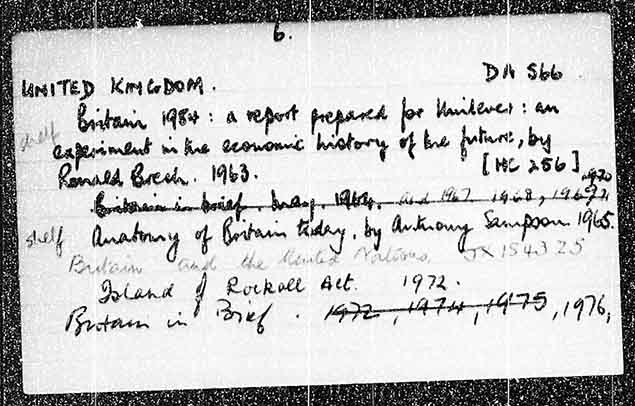 6.
UNITED KINGDOM. DA 566
shelf Britain 1984 : a report prepared for Unilever : an
experiment in the economic history of the future, by
Ronald Brech. 1963. [HC 256]
Britain in brief. May, 1964. and 1967 1968, 1969, 1970
shelf Anatomy of Britain today, by Anthony Sampson. 1965.
Britain and the United Nations. JX 1543 25
Island of Rockall Act. 1972.
Britain in Brief. 1972, 1974, 1975, 1976,